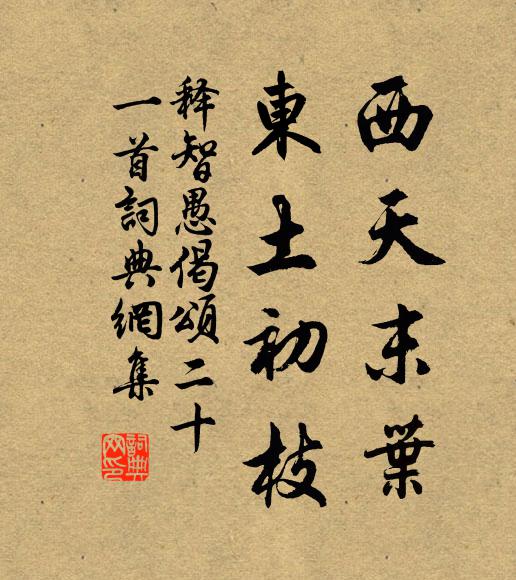 西天末葉
東土初枝
释智愚偈頌二十
一首詞典網集
詞典
网印